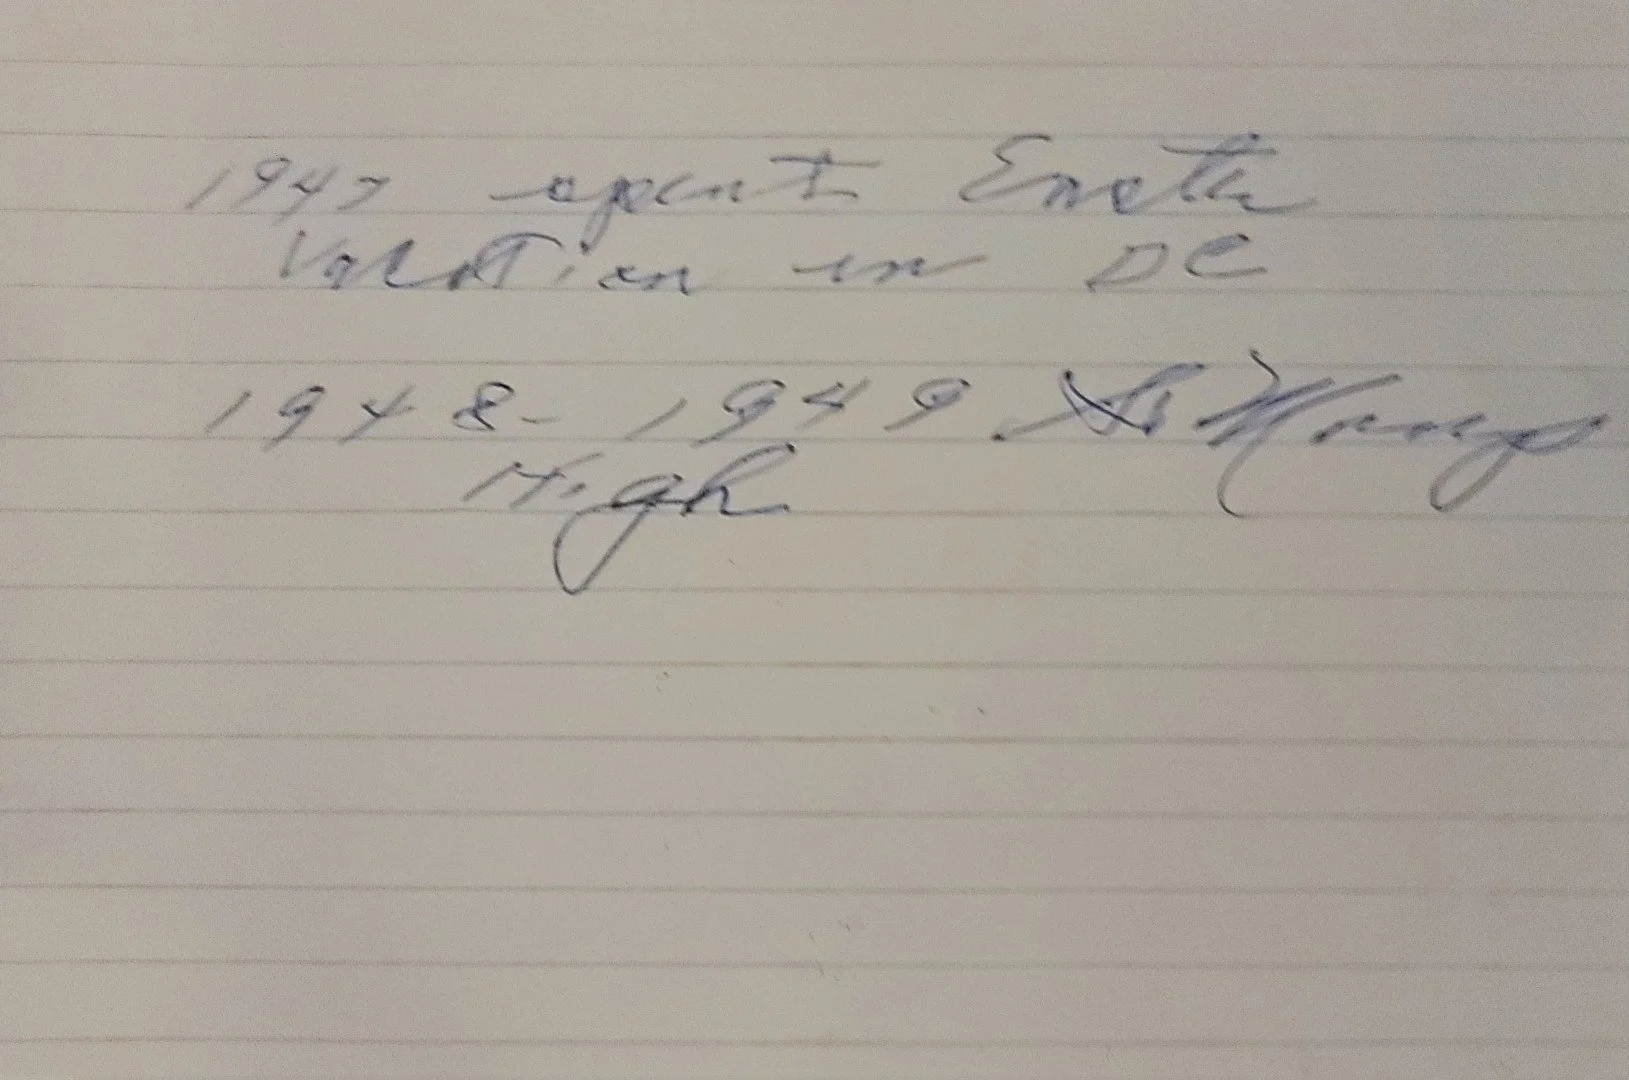 1947 spent
Vacation in DC
1948-1949 St
High